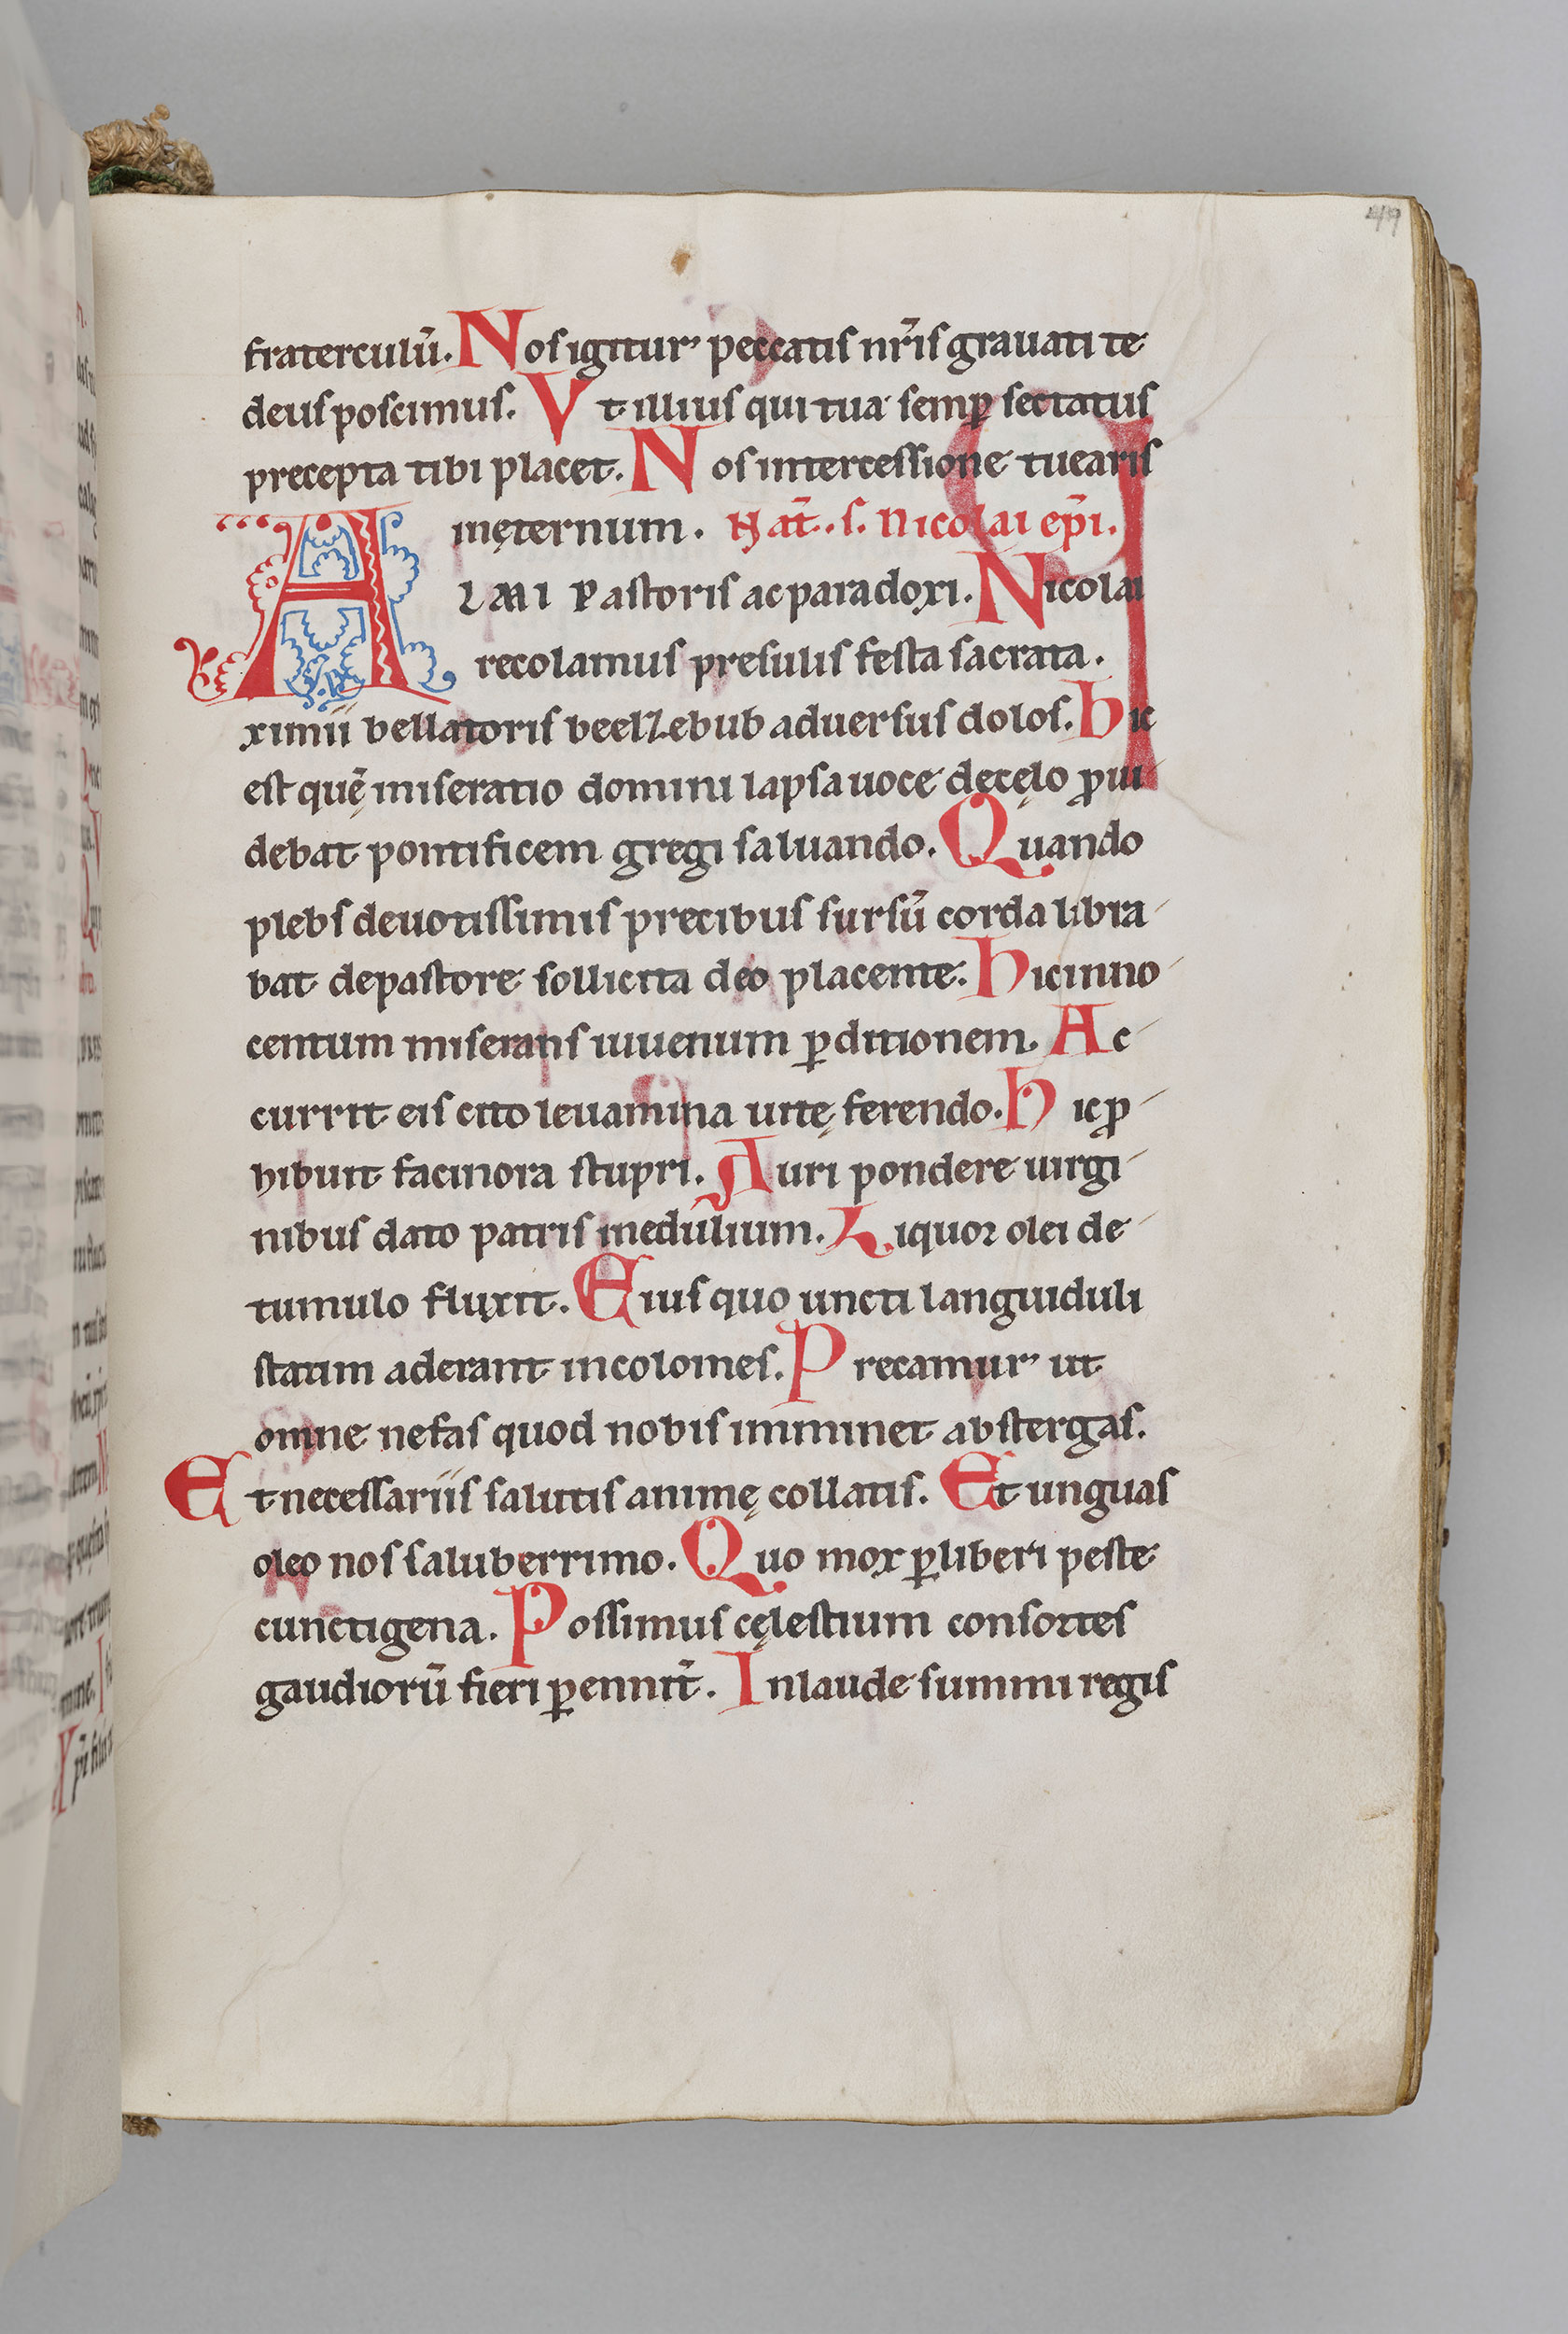 fraterculū. Nos igitur peccatis nr̄is grauati te
deus poscimus. Vt illius qui tua semꝑ sectatus
precepta tibi placet. Nos intercessione tuearis
in ęternum. Nat̄. s. Nicolai ep̄i.
ALMI Pastoris ac paradoxi. Nicolai
recolamus presulis festa sacrata.
ximii bellatoris beelzebub aduersus dolos. Hic
est quē miseratio domini lapsa uoce de cęlo ꝓui
debat pontificem gregi saluando. Quando
plebs deuotissimis precibus sursū corda libra
bat de pastore sollicita deo placente. Hic inno
centum miserans iuuenum ꝑditionem. Ac
currit eis cito leuamina uitę ferendo. Hic ꝓ
hibuit facinora stupri. Auri pondere uirgi
nibus dato patris in edulium. Liquor olei de
tumulo fluxit. Eius quo uncti languiduli
statim aderant incolomes. Precamur ut
omne nefas quod nobis imminet abstergas.
Et necessariis salutis animę collatis. Et unguas
oleo nos saluberrimo. Quo mox ꝑliberi peste
cunctigena. Possimus cęlestium consortes
gaudiorū fieri ꝑennit̄. In laude summi regis